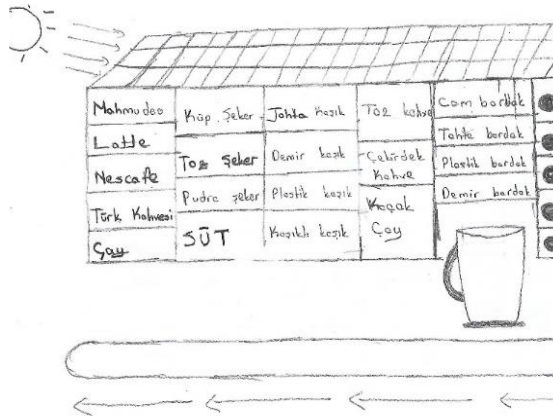 Mahmudeo
Latte
Nescafe
Türk Kahvesi
Çay
Küp Şeker
Toz Şeker
Pudra şeker
SÜT
Tahta Kaşık
Demir kaşık
Plastik kaşık
Kaşıklı kaşık
Toz kahve
Çekirdek
Kahve
Kaçak
Çay
Cam bardak
Tahta bardak
Plastik bardak
Demir bardak